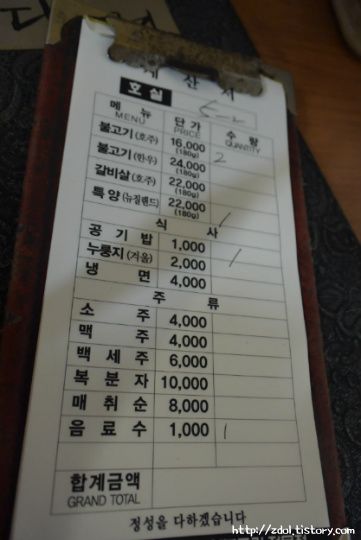 계산서
호실 5-2
메뉴 MENU 단가 PRICE 수량 QUANTITY
불고기(호주) 16,000 (180g)
불고기(한우) 24,000 (180g) 2
갈비살(호주) 22,000 (180g)
특양(뉴질랜드) 22,000 (180g)
식사
공기밥 1,000
누룽지(겨울) 2,000 1
냉면 4,000
주류
소주 4,000
맥주 4,000
백세주 6,000
복분자 10,000
매취순 8,000
음료수 1,000 1
합계금액
GRAND TOTAL
정성을 다하겠습니다
http://zdol.tistory.com